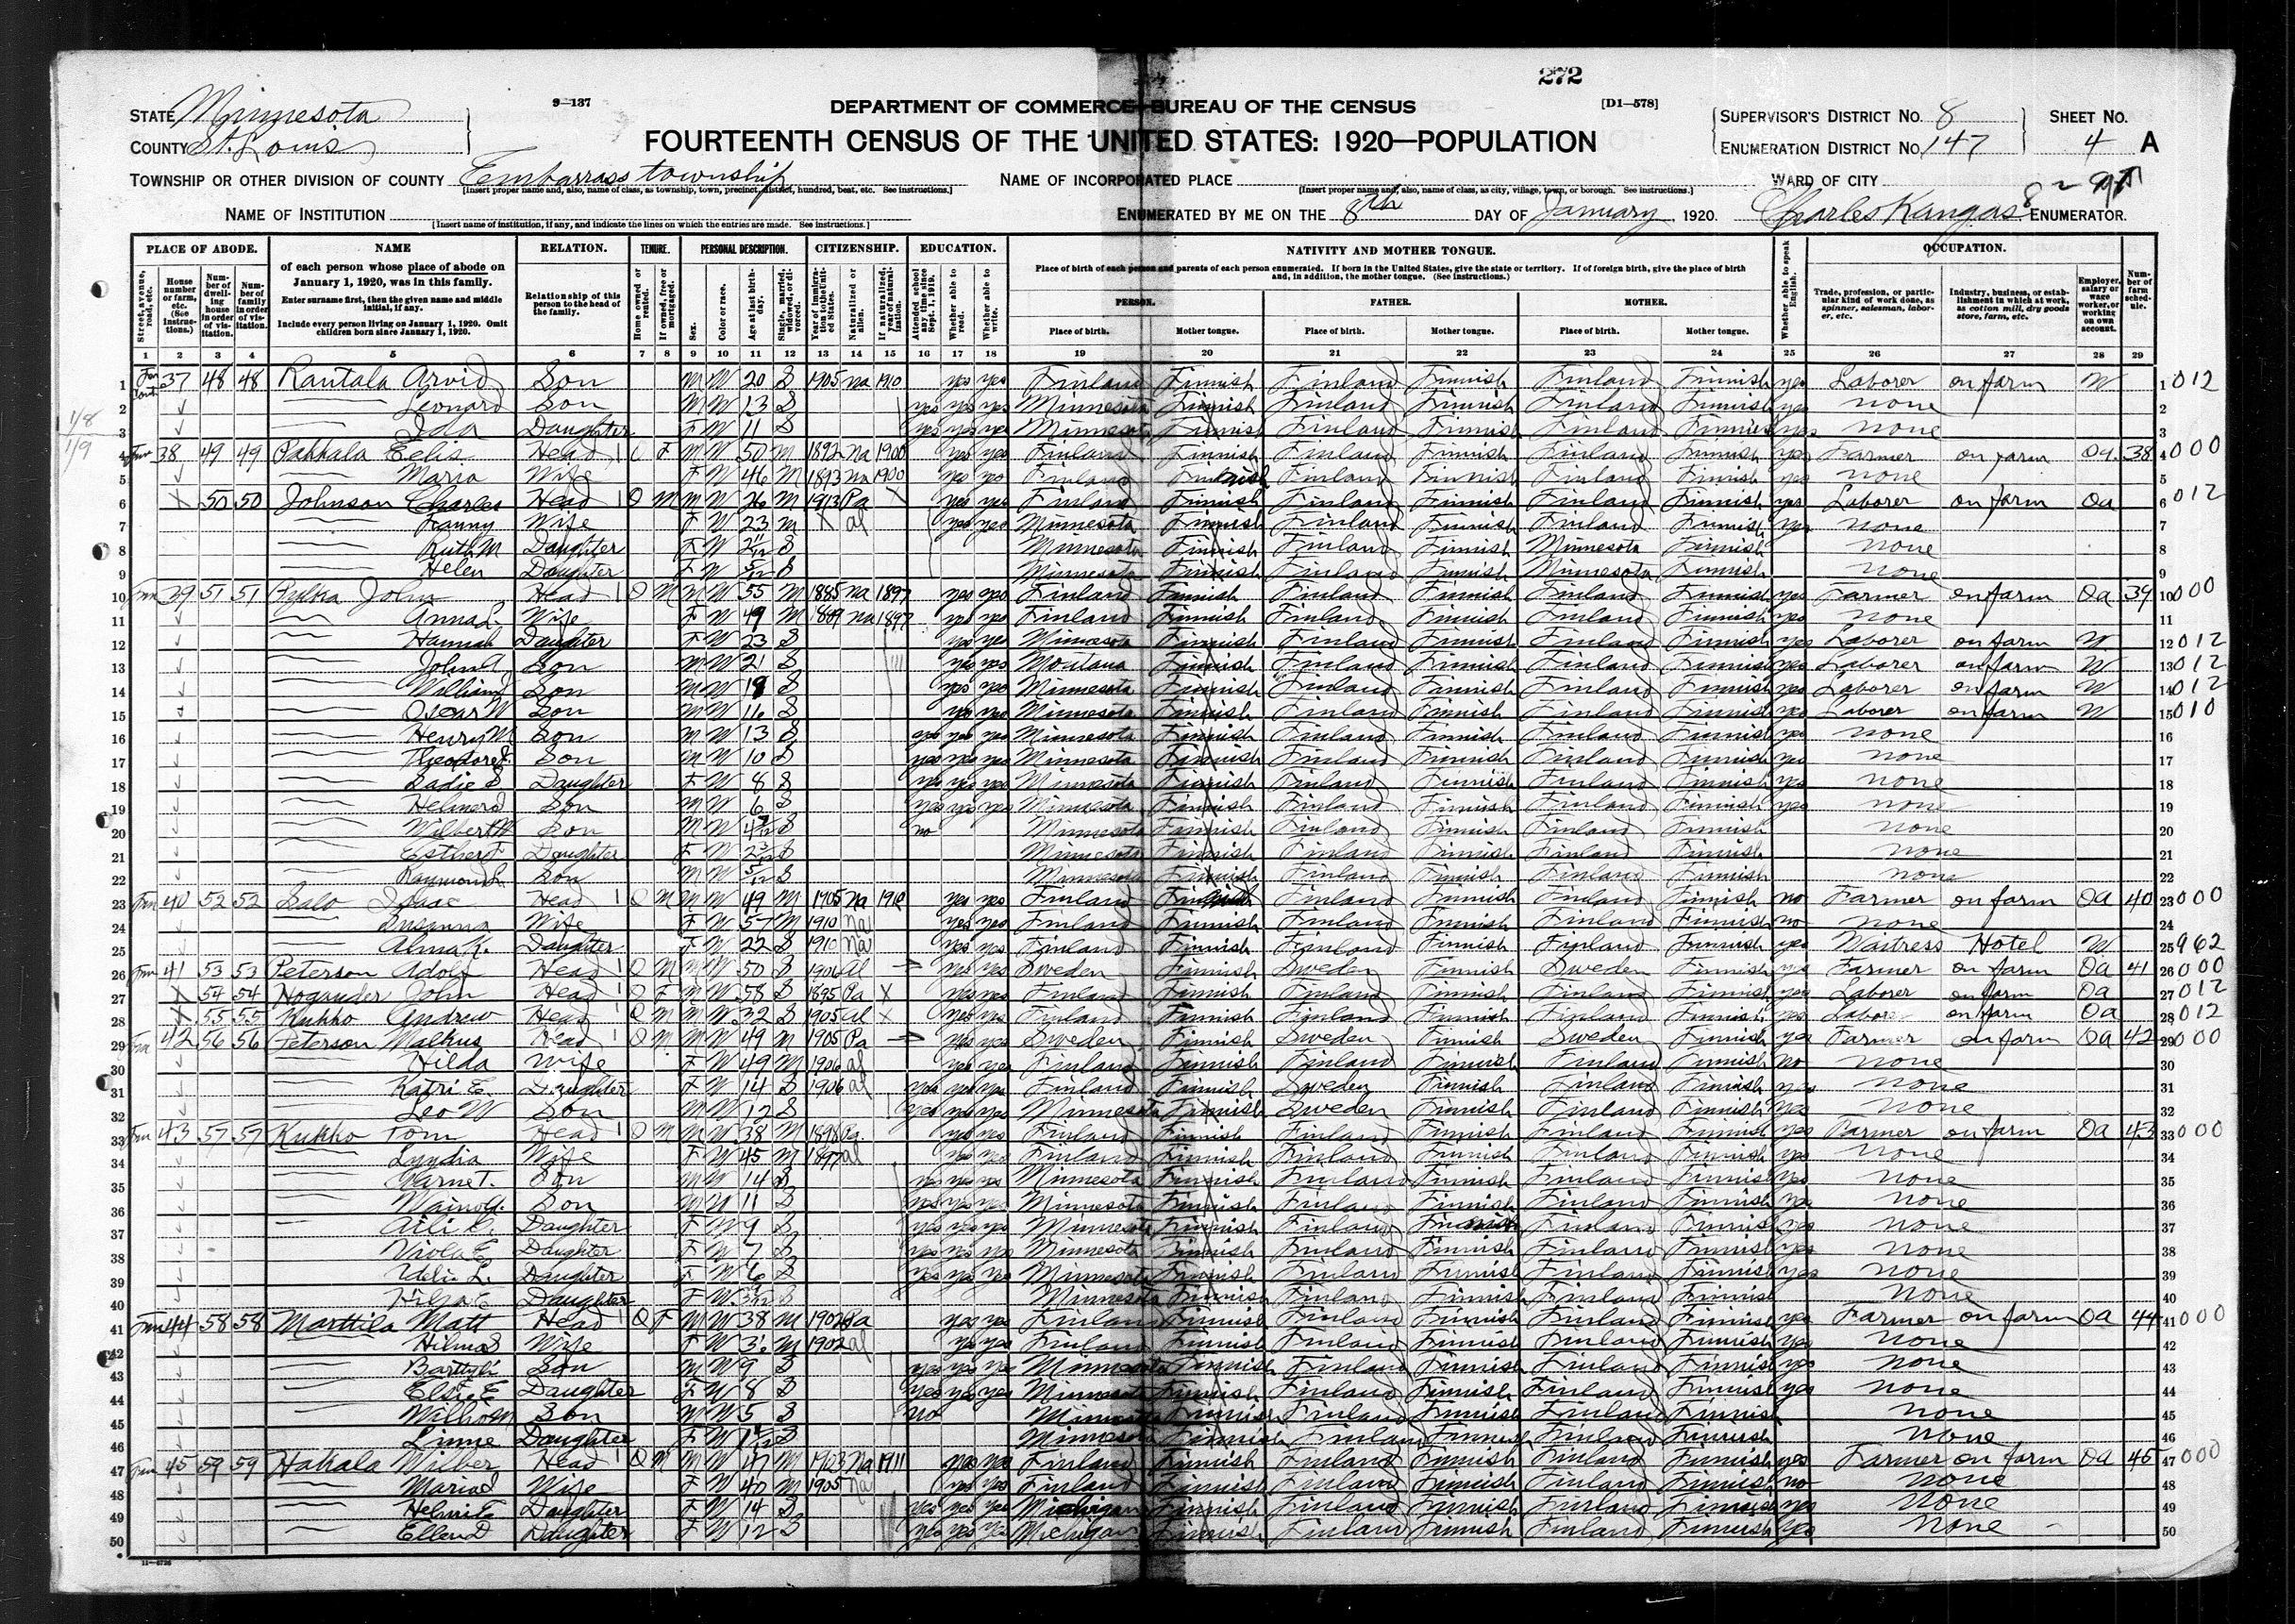 272
9—137
DEPARTMENT OF COMMERCE—BUREAU OF THE CENSUS
[D1—578]
STATE Minnesota
COUNTY St. Louis
FOURTEENTH CENSUS OF THE UNITED STATES: 1920—POPULATION
SUPERVISOR'S DISTRICT No. 8
ENUMERATION DISTRICT No. 147
SHEET No. 4 A
TOWNSHIP OR OTHER DIVISION OF COUNTY Embarrass township
[Insert proper name and, also, name of class, as township, town, precinct, district, hundred, beat, etc. See instructions.]
NAME OF INCORPORATED PLACE
[Insert proper name and, also, name of class, as city, village, town, or borough. See instructions.]
WARD OF CITY
NAME OF INSTITUTION
[Insert name of institution, if any, and indicate the lines on which the entries are made. See instructions.]
ENUMERATED BY ME ON THE 8th DAY OF January, 1920. Charles Kangas ENUMERATOR.
PLACE OF ABODE. NAME RELATION. TENURE. PERSONAL DESCRIPTION. CITIZENSHIP. EDUCATION. NATIVITY AND MOTHER TONGUE. OCCUPATION.
of each person whose place of abode on January 1, 1920, was in this family.
Enter surname first, then the given name and middle initial, if any.
Include every person living on January 1, 1920. Omit children born since January 1, 1920.
Relationship of this person to the head of the family.
Place of birth of each person and parents of each person enumerated. If born in the United States, give the state or territory. If of foreign birth, give the place of birth and, in addition, the mother tongue. (See instructions.)
PERSON. FATHER. MOTHER.
Place of birth. Mother tongue. Place of birth. Mother tongue. Place of birth. Mother tongue.
1 2 3 4 5 6 7 8 9 10 11 12 13 14 15 16 17 18 19 20 21 22 23 24 25 26 27 28 29
1 Fm 37 48 48 Rantala Arvid Son M W 20 S 1905 Na 1910 yes yes Finland Finnish Finland Finnish Finland Finnish yes Laborer on farm W 1 012
2 Leonard Son M W 13 S yes yes yes Minnesota Finnish Finland Finnish Finland Finnish yes none 2
3 Ida Daughter F W 11 S yes yes yes Minnesota Finnish Finland Finnish Finland Finnish yes none 3
4 Fm 38 49 49 Pakkala Eelis Head F M W 50 M 1892 Na 1900 yes yes Finland Finnish Finland Finnish Finland Finnish yes Farmer on farm Oa 38 4 000
5 Maria Wife F W 46 M 1893 Na 1900 yes yes Finland Finnish Finland Finnish Finland Finnish yes none 5
6 X 50 50 Johnson Charles Head O M M W 26 M 1913 Pa X yes yes Finland Finnish Finland Finnish Finland Finnish yes Laborer on farm Oa 6 012
7 Fanny Wife F W 23 M X al yes yes Minnesota Finnish Finland Finnish Finland Finnish yes none 7
8 Ruth M Daughter F W 2 11/12 S Minnesota Finnish Finland Finnish Minnesota Finnish none 8
9 Helen Daughter F W S Minnesota Finnish Finland Finnish Minnesota Finnish none 9
10 Fm 39 51 51 Pylka John Head O M M W 55 M 1885 Na 1897 yes yes Finland Finnish Finland Finnish Finland Finnish yes Farmer on farm Oa 39 10 000
11 Anna L. Wife F W 49 M 1889 Na 1897 yes yes Finland Finnish Finland Finnish Finland Finnish yes none 11
12 Hannah Daughter F W 23 S yes yes Minnesota Finnish Finland Finnish Finland Finnish yes Laborer on farm W 12 012
13 John A. Son M W 21 S yes yes Montana Finnish Finland Finnish Finland Finnish yes Laborer on farm W 13 012
14 William J Son M W S yes yes Minnesota Finnish Finland Finnish Finland Finnish yes Laborer on farm W 14 012
15 Oscar W Son M W 16 S yes yes Minnesota Finnish Finland Finnish Finland Finnish yes Laborer on farm W 15 010
16 Henry M Son M W 13 S yes yes yes Minnesota Finnish Finland Finnish Finland Finnish yes none 16
17 Theodore J. Son M W 10 S yes yes yes Minnesota Finnish Finland Finnish Finland Finnish yes none 17
18 Sadie S Daughter F W 8 S yes yes yes Minnesota Finnish Finland Finnish Finland Finnish yes none 18
19 Helmer Son M W 6 S yes yes yes Minnesota Finnish Finland Finnish Finland Finnish yes none 19
20 Wilbert W Son M W S no Minnesota Finnish Finland Finnish Finland Finnish none 20
21 Esther J. Daughter F W 2 3/12 S Minnesota Finnish Finland Finnish Finland Finnish none 21
22 Raymond L. Son M W S Minnesota Finnish Finland Finnish Finland Finnish none 22
23 Fm 40 52 52 Salo Isaac Head O M M W 49 M 1905 Na yes yes Finland Finnish Finland Finnish Finland Finnish no Farmer on farm Oa 40 23 000
24 Susanna Wife F W 57 M 1910 Na yes yes Finland Finnish Finland Finnish Finland Finnish no none 24
25 Alma K. Daughter F W 22 S 1910 Na yes yes Finland Finnish Finland Finnish Finland Finnish yes Waitress Hotel W 25 962
26 Fm 41 53 53 Peterson Adolf Head O M M W 50 S 1906 al yes yes Sweden Finnish Sweden Finnish Sweden Finnish yes Farmer on farm Oa 41 26 000
27 X 54 54 John Head O F M W 58 S 1895 Pa X yes yes Finland Finnish Finland Finnish Finland Finnish yes Laborer on farm Oa 27 012
28 X 55 55 Kukko Andrew Head O M M W 32 S 1905 al X yes yes Finland Finnish Finland Finnish Finland Finnish yes Laborer on farm Oa 28 012
29 Fm 42 56 56 Peterson Malkus Head O M M W 49 M 1905 Pa yes yes Sweden Finnish Sweden Finnish Sweden Finnish yes Farmer on farm Oa 42 29 000
30 Hilda Wife F W 49 M 1906 al yes yes Finland Finnish Finland Finnish Finland Finnish no none 30
31 Katri E. Daughter F W 14 S 1906 al yes yes yes Finland Finnish Sweden Finnish Finland Finnish yes none 31
32 Leo W Son M W 12 S yes yes yes Minnesota Finnish Sweden Finnish Finland Finnish yes none 32
33 Fm 43 57 57 Kukko Tom Head O M M W 38 M 1898 Pa yes yes Finland Finnish Finland Finnish Finland Finnish yes Farmer on farm Oa 43 33 000
34 Lyydia Wife F W 45 M 1897 al yes yes Finland Finnish Finland Finnish Finland Finnish yes none 34
35 T. Son M W 14 S yes yes yes Minnesota Finnish Finland Finnish Finland Finnish yes none 35
36 Waino Son M W 11 S yes yes yes Minnesota Finnish Finland Finnish Finland Finnish yes none 36
37 Aili Daughter F W 9 S yes yes yes Minnesota Finnish Finland Finnish Finland Finnish yes none 37
38 Viola E. Daughter F W 7 S yes yes yes Minnesota Finnish Finland Finnish Finland Finnish yes none 38
39 L. Daughter F W 6 S yes yes yes Minnesota Finnish Finland Finnish Finland Finnish yes none 39
40 Daughter F W S Minnesota Finnish Finland Finnish Finland Finnish none 40
41 Fm 44 58 58 Marttila Matt Head O F M W 38 M 1902 Pa yes yes Finland Finnish Finland Finnish Finland Finnish yes Farmer on farm Oa 44 41 000
42 Hilma S Wife F W M 1902 al yes yes Finland Finnish Finland Finnish Finland Finnish yes none 42
43 Son M W 9 S yes yes yes Minnesota Finnish Finland Finnish Finland Finnish yes none 43
44 Elsie E Daughter F W 8 S yes yes yes Minnesota Finnish Finland Finnish Finland Finnish yes none 44
45 Son M W 5 S no Minnesota Finnish Finland Finnish Finland Finnish none 45
46 Linne Daughter F W S Minnesota Finnish Finland Finnish Finland Finnish none 46
47 Fm 45 59 59 Hakala Wilber Head O M M W 47 M 1903 Na 1911 yes yes Finland Finnish Finland Finnish Finland Finnish yes Farmer on farm Oa 45 47 000
48 Maria Wife F W 40 M 1905 Na yes yes Finland Finnish Finland Finnish Finland Finnish no none 48
49 Helmi E Daughter F W 14 S yes yes yes Michigan Finnish Finland Finnish Finland Finnish yes none 49
50 Ellen D Daughter F W 12 S yes yes yes Michigan Finnish Finland Finnish Finland Finnish yes none 50